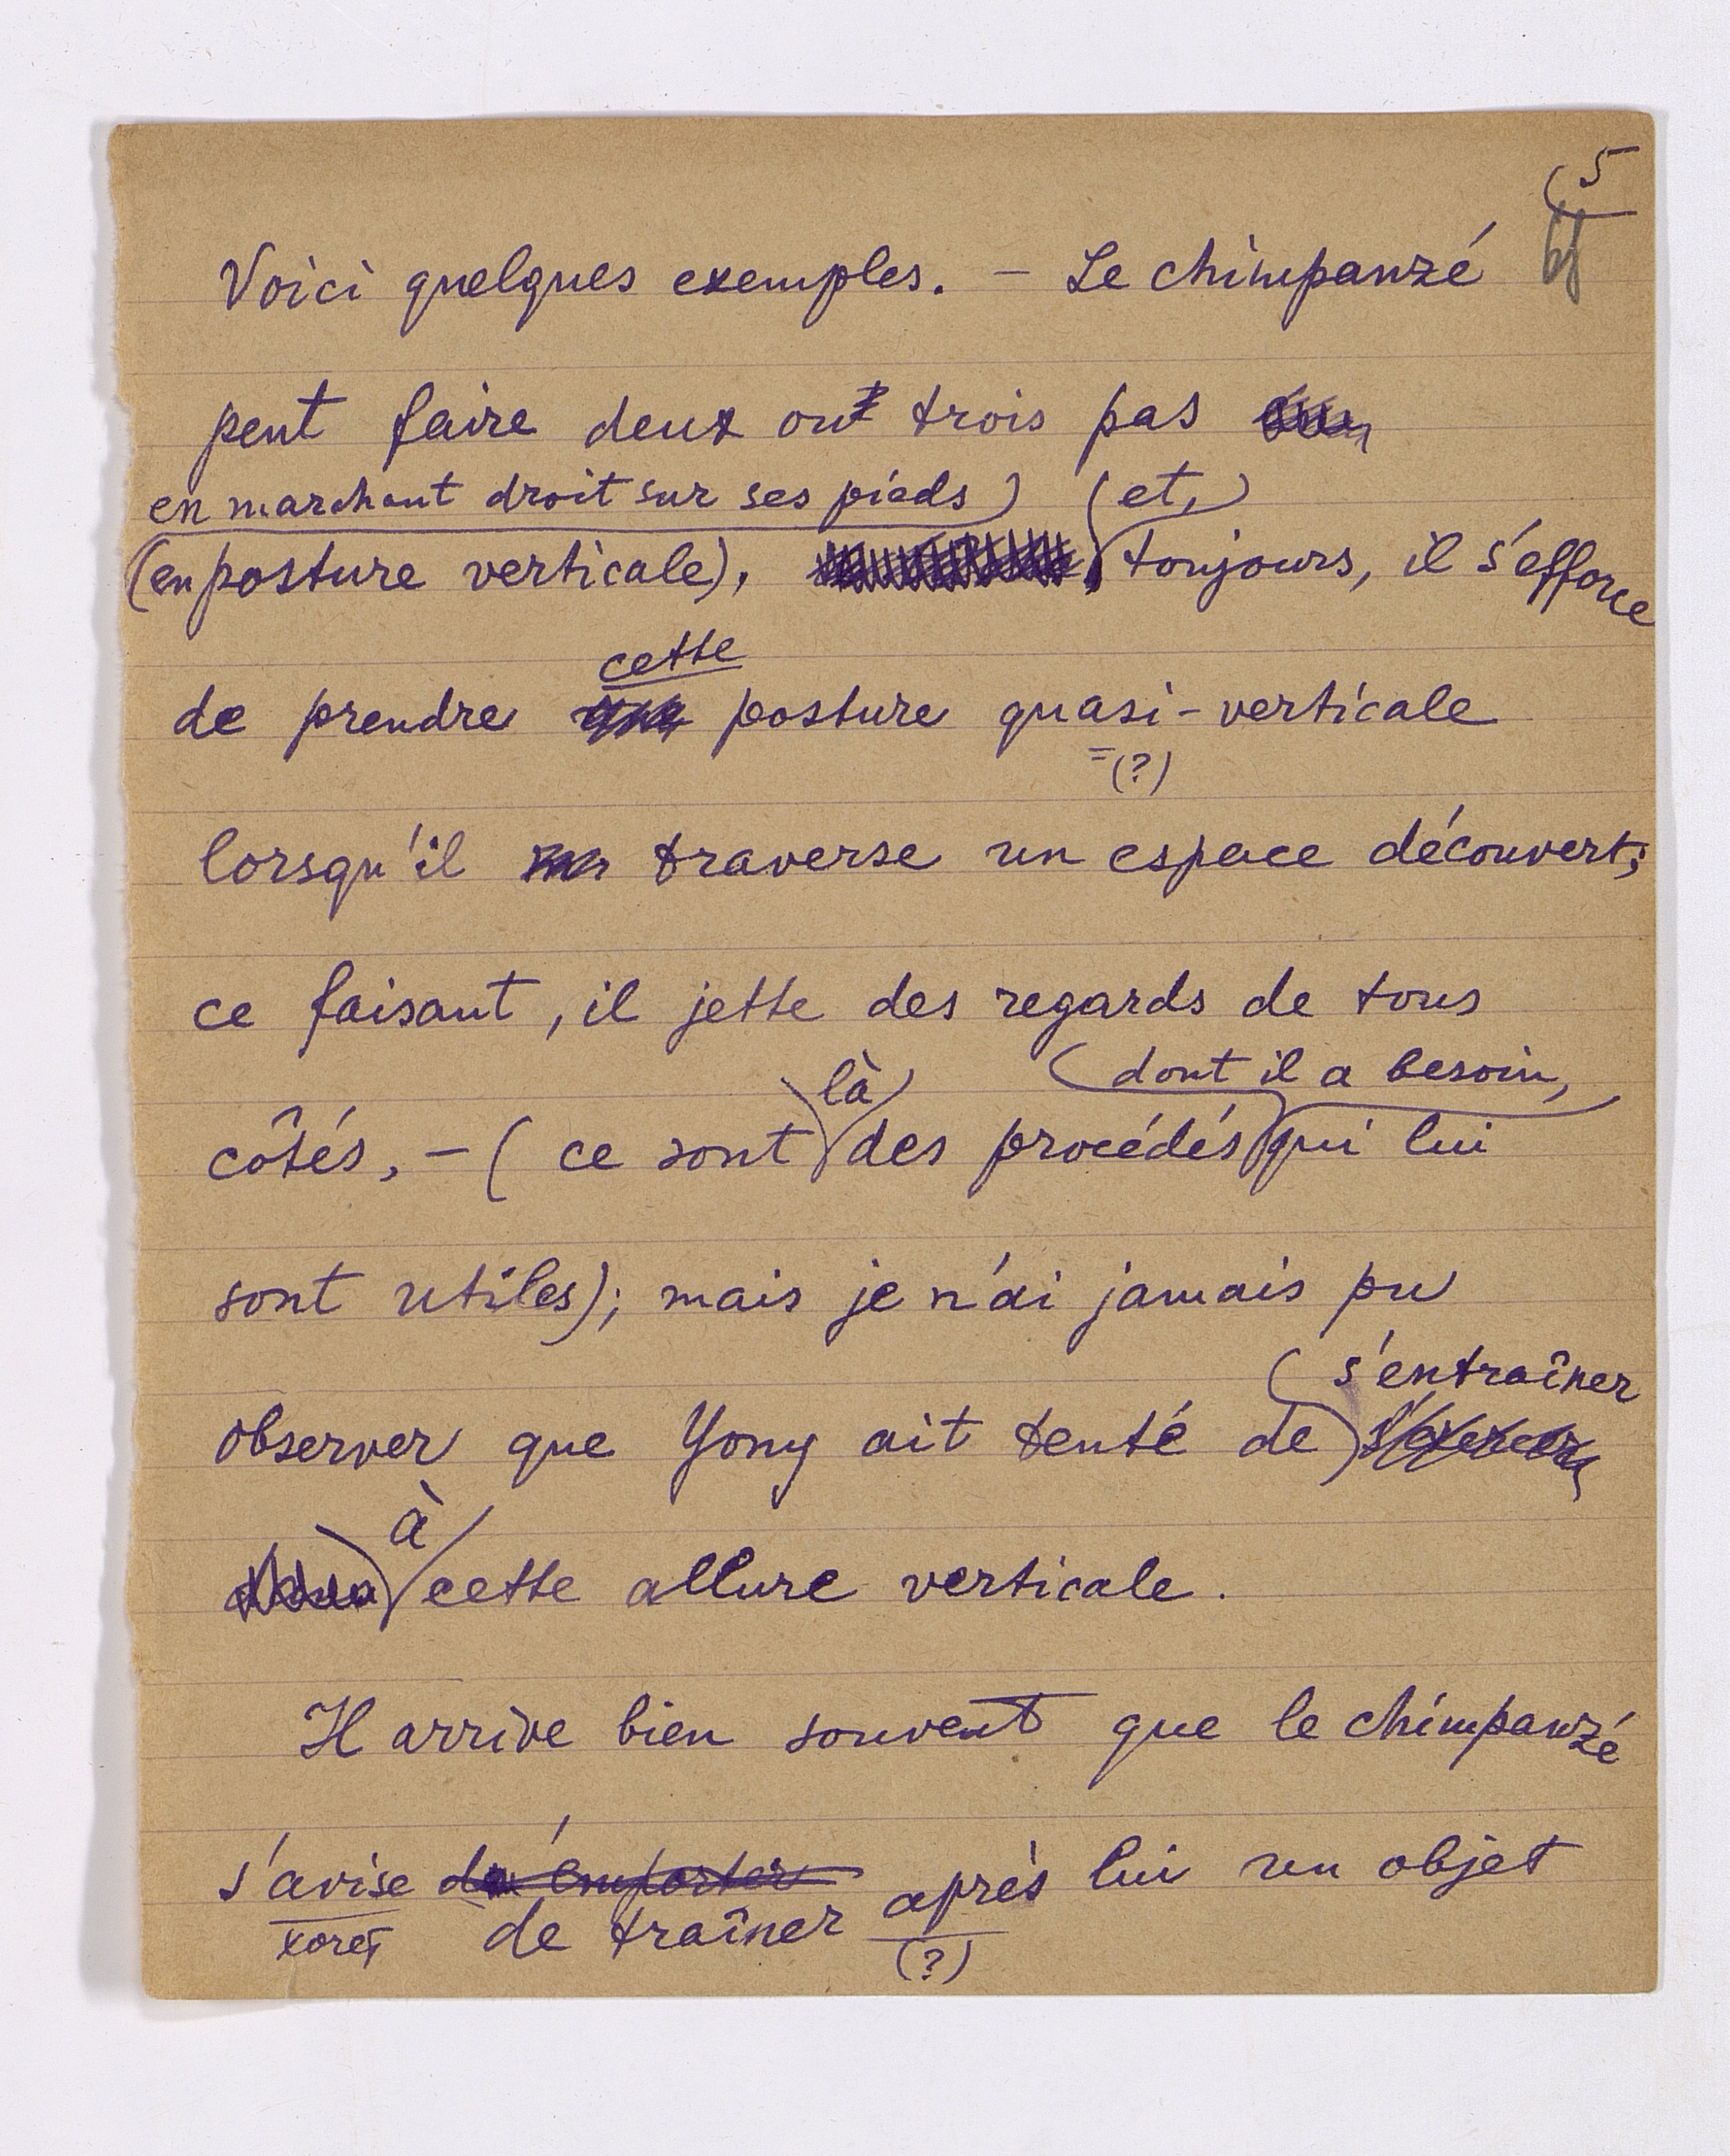 5
Voici quelques exemples. – Le chimpanzé
peut faire deux ou trois pas
en marchant droit sur ses pieds) (et,)
(en posture verticale), toujours, il s'efforce
cette
de prendre posture quasi-verticale
=(?)
lorsqu'il traverse un espace découvert;
ce faisant, il jette des regards de tous
là (dont il a besoin,
côtés, – (ce sont des procédés qui lui
sont utiles); mais je n'ai jamais pu
(s'entraîner
observer que Yony ait tenté de s'exercer
à
cette allure verticale.
Il arrive bien souvent que le chimpanzé
s'avise emporter après lui un objet
хочет de traîner (?)